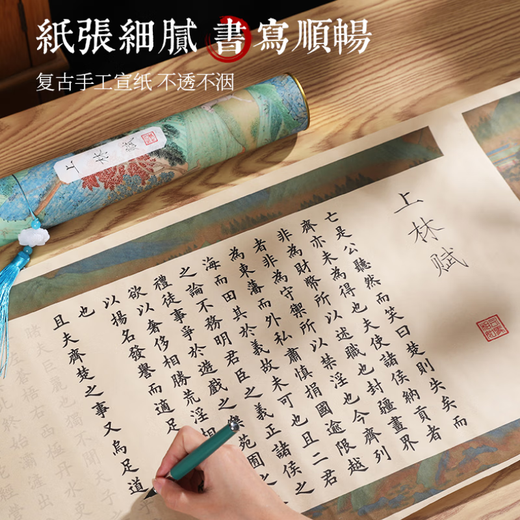 紙張細膩 書寫順暢
复古手工宣纸 不透不洇
上林賦
上林赋
亡是公聽然而笑曰楚則失矣而
齊亦未為得也夫使諸侯納貢者
非為財幣所以述職也封疆畫界
者非為守禦所以禁淫也今齊列
為東藩而外私肅慎捐國逾限越
海而田其於義故未可也且二君
之論不務明君臣之義正諸侯之
禮徒事爭於遊戲之樂苑囿之
欲以奢侈相勝荒淫相
以揚名發譽而適足
也
且夫齊楚之事又烏足道